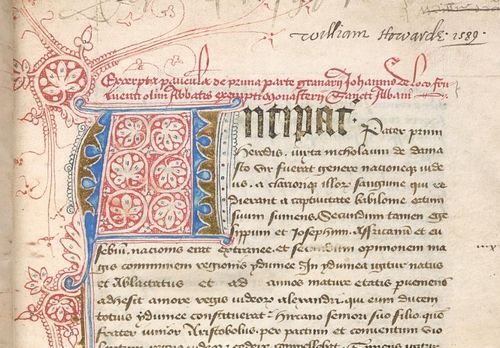 William Howarde · 1589 ·
Excerpta paucula de prima parte granarii Johannis de loco fru
menti olim Abbatis exempti Monasterii Sancti Albani
Antipater
Pater primi
Herodis · iuxta nicholaum de dama
sto Sur fuerat genere nacioneque iude
us · a clarioribus illorum sanguine qui re
dierant a captivitate babilonie etim
sium sumens · Secundum tamen Ege
sippum et Josephum · Affricanum et eu
sebium · nacionis erat extranee · et secundum opinionem ma
gis communem regionis ydumee · In ydumea igitur natus
et Ablactatus et ad annos mature etatis pueniens
adhesit amore regis iudeorum alexandri · qui eum ducem
totius ydumee constituerat · hircano seniori suo filio · quem
frater iunior Aristobolus · per pactum et conuentum suo